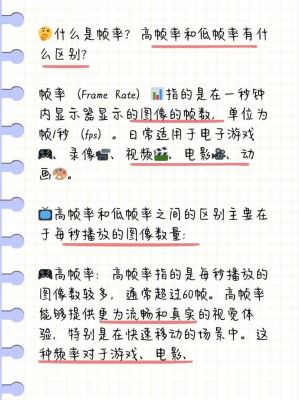 🤔什么是帧率？ 高帧率和低帧率有什
么区别？
帧率 (Frame Rate) 📊指的是在一秒钟
内显示器显示的图像的帧数，单位为
帧/秒 (fps) 。日常适用于电子游戏
🎮、录像📹、视频🎬、电影🎥、动
画🎨。
📺高帧率和低帧率之间的区别主要在
于每秒播放的图像数量：
🎮高帧率： 高帧率指的是每秒播放的
图像数较多，通常超过60帧。高帧率
能够提供更为流畅和真实的视觉体
验，特别是在快速移动的场景中。这
种频率对于游戏、电影、